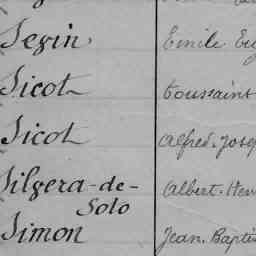 Sevin Emile Eug
Sicot Toussaint
Sicot Alfred-Josep
Silvera-de- Albert-Henr
Solo
Simon Jean-Baptis